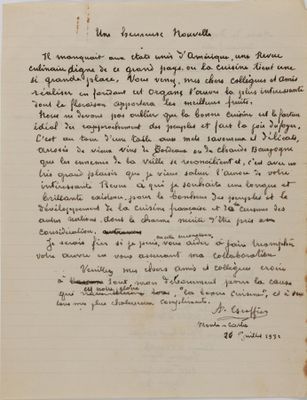 Une heureuse Nouvelle
Il manquait aux états unis d'Amérique, une Revue
culinaire digne de ce grand pays, ou la cuisine tient une
si grande place. Vous venez, mes chers collègues et amis
réaliser en fondant cet organe l'œuvre la plus intéressante
dont la floraison apportera les meilleurs fruits.
Nous ne devons pas oublier que la bonne cuisine est le facteur
idéal du rapprochement des peuples et fait la joie du foyer.
C'est au tour d'un table aux mets savoureux et délicats,
arrosés de vieux vins de Bordeaux ou de chauds Bourgogne
que les ennemis de la veille se réconcilient et, c'est avec un
très grand plaisir que je viens saluer l'aurore de votre
intéressante Revue à qui je souhaite une longue et
brillante carrière, pour le bonheur des peuples et le
développement de la cuisine française et la cuisine des
autres nations dont le charme mérite d'être pris en
considération.
Je serais fier si je puis, vous aider à faire triompher
votre œuvre en vous assurant ma collaboration
Veuillez mes chers amis et collègues croire
à tout mon dévouement pour la cause
qui est notre gloire "la bonne cuisine", et à
tous mes plus chaleureux compliments.
A. Escoffier
Monte-Carlo
26 juillet 1932